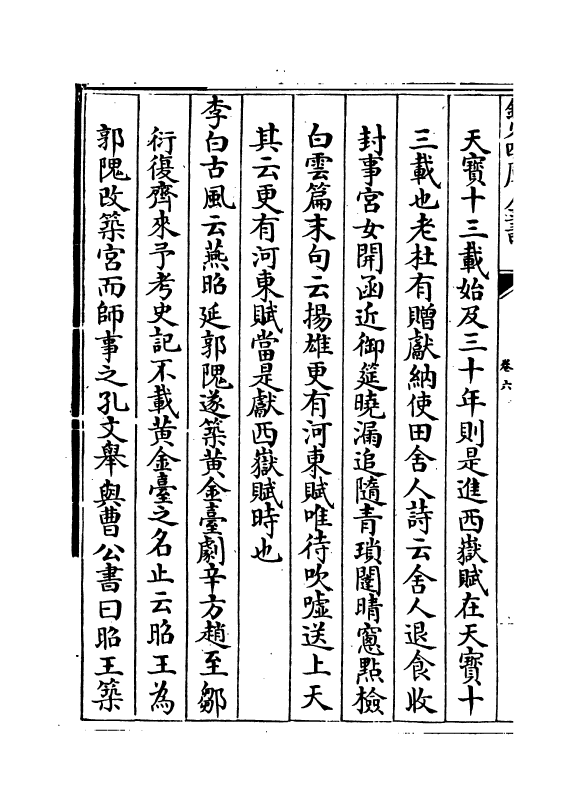 欽定四庫全書
卷六
天寶十三載始及三十年則是進西嶽賦在天寶十
三載也老杜有贈獻納使田舍人詩云舍人退食收
封事宮女開函近御筵曉漏追隨青瑣闥晴窻點檢
白雲篇末句云揚雄更有河東賦唯待吹噓送上天
其云更有河東賦當是獻西嶽賦時也
李白古風云燕昭延郭隗遂築黄金臺劇辛方趙至鄒
衍復齊來予考史記不載黄金臺之名止云昭王為
郭隗改築宮而師事之孔文舉與曹公書曰昭王築